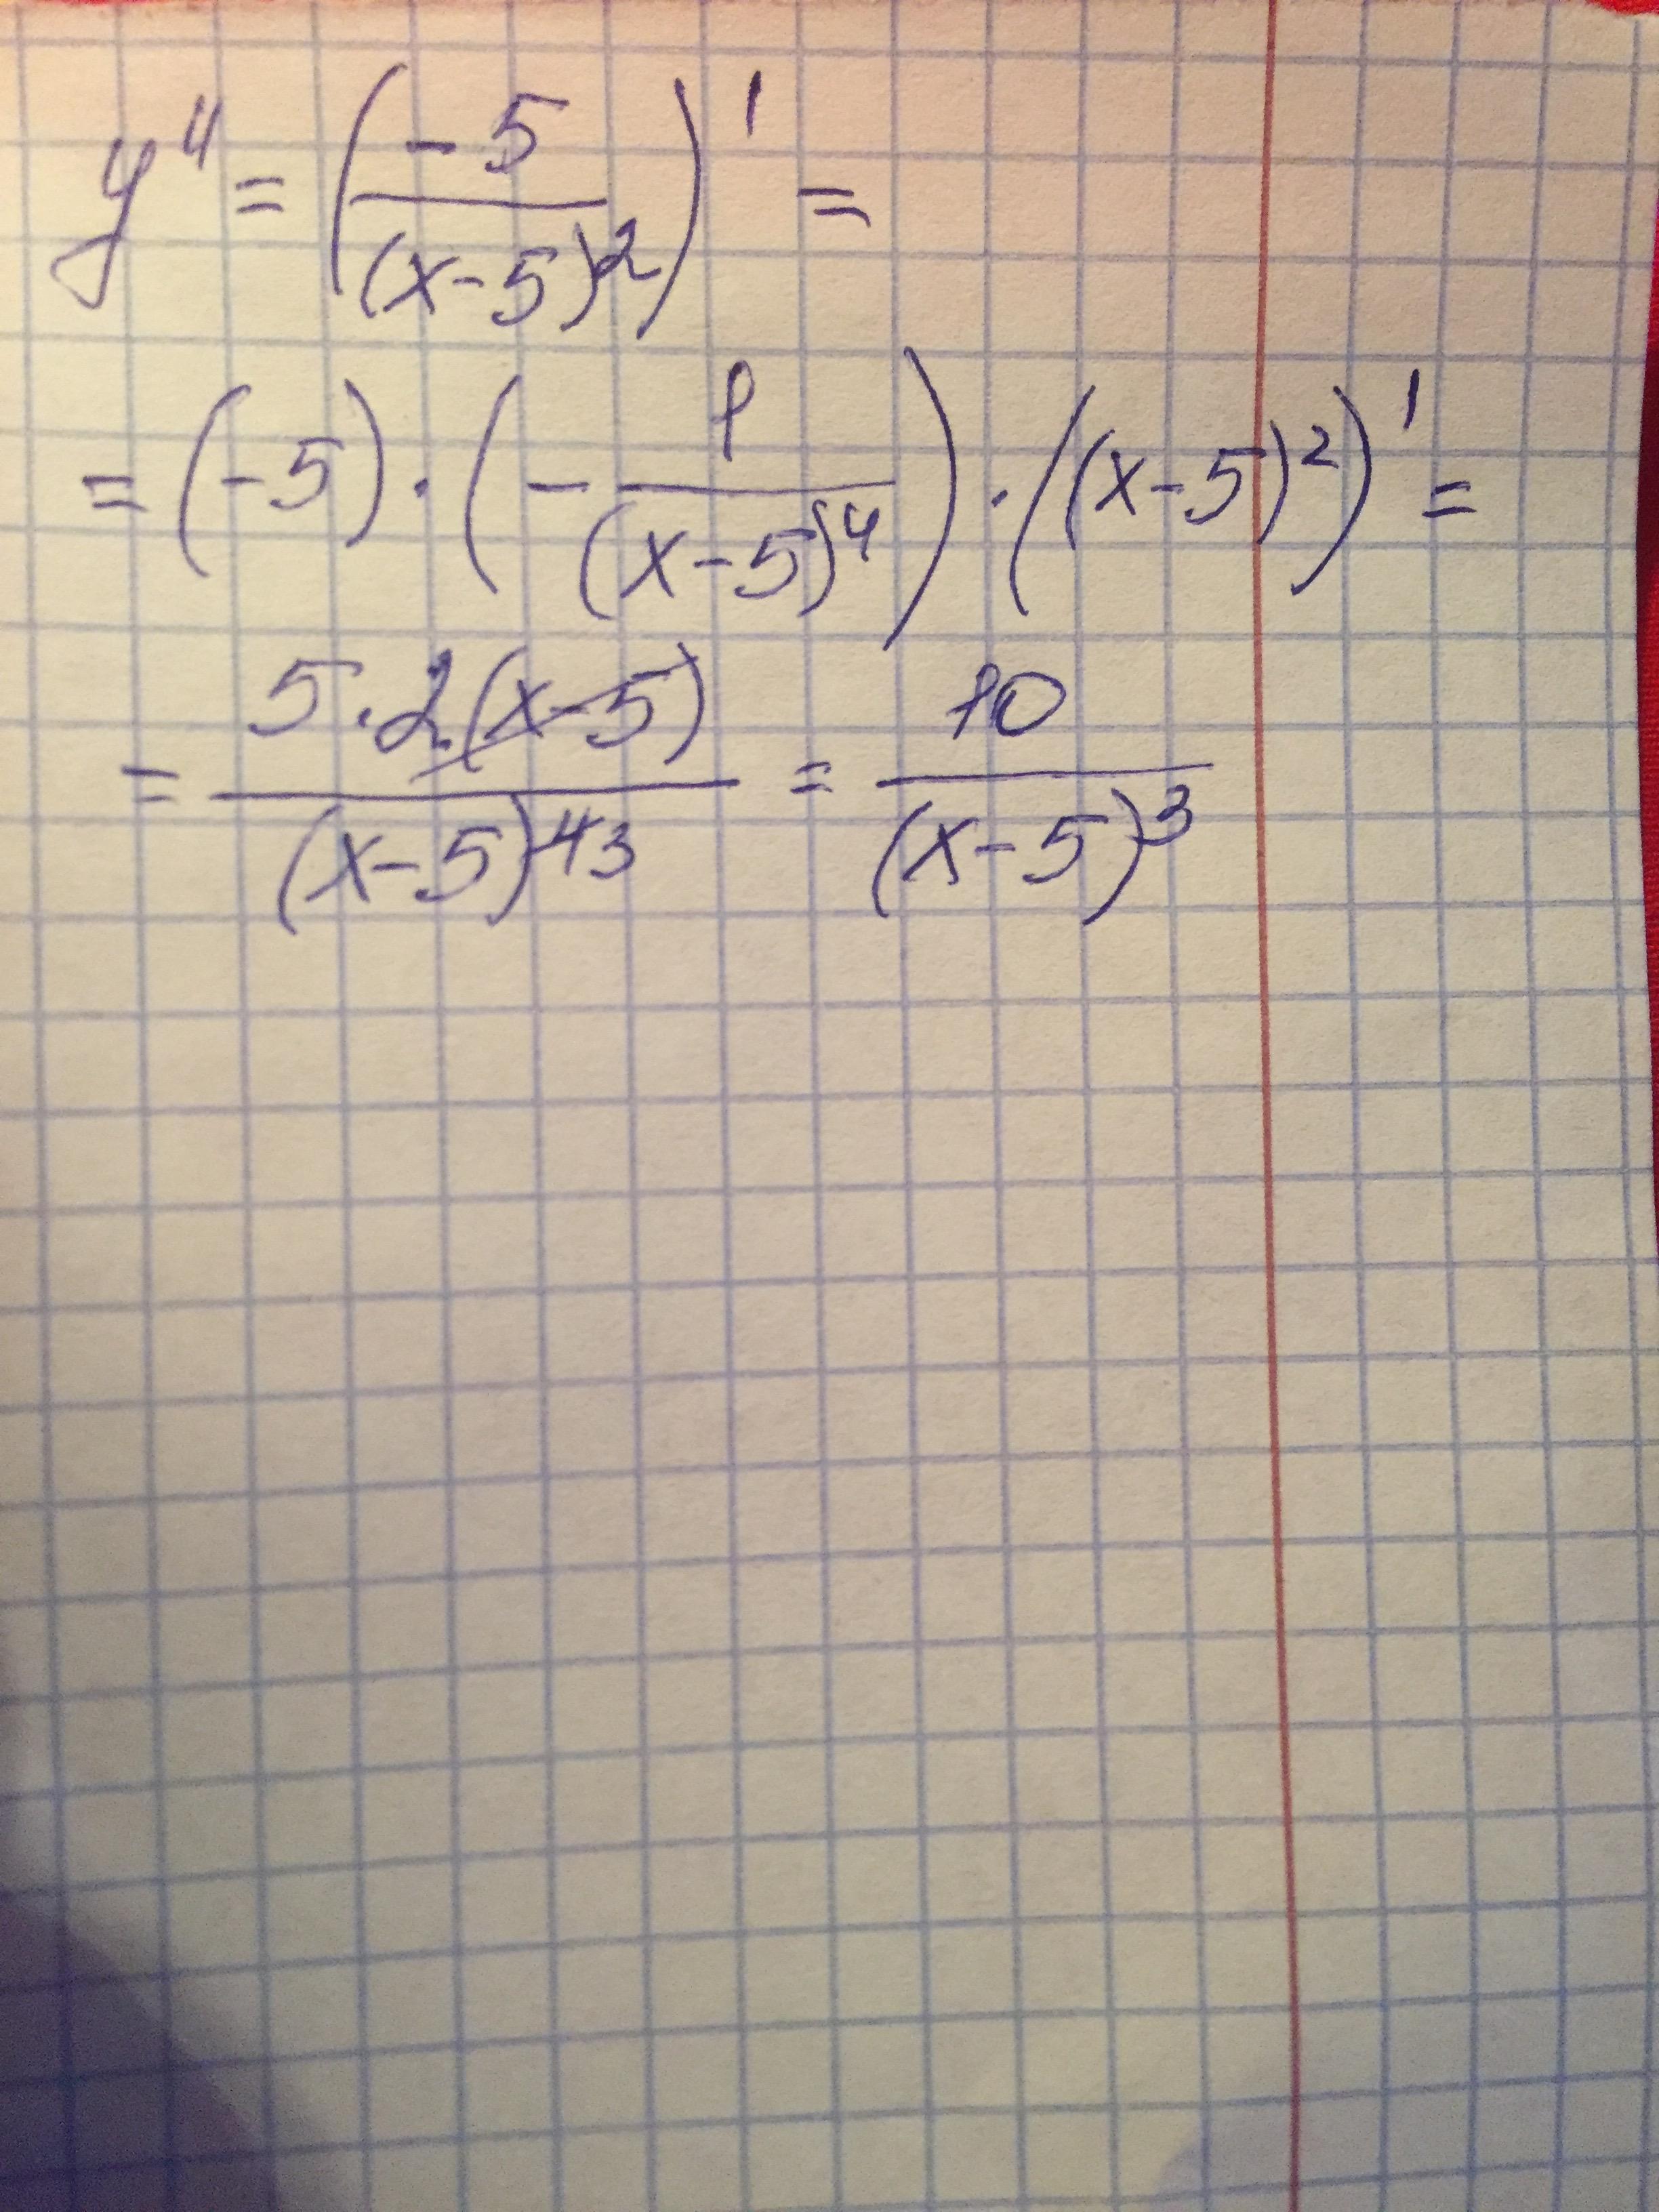 y'' = (-5/(x-5)²)' =
= (-5) · (- 1/(x-5)⁴) · ((x-5)²)' =
= 5·2(x-5)/(x-5)⁴³ = 10/(x-5)³